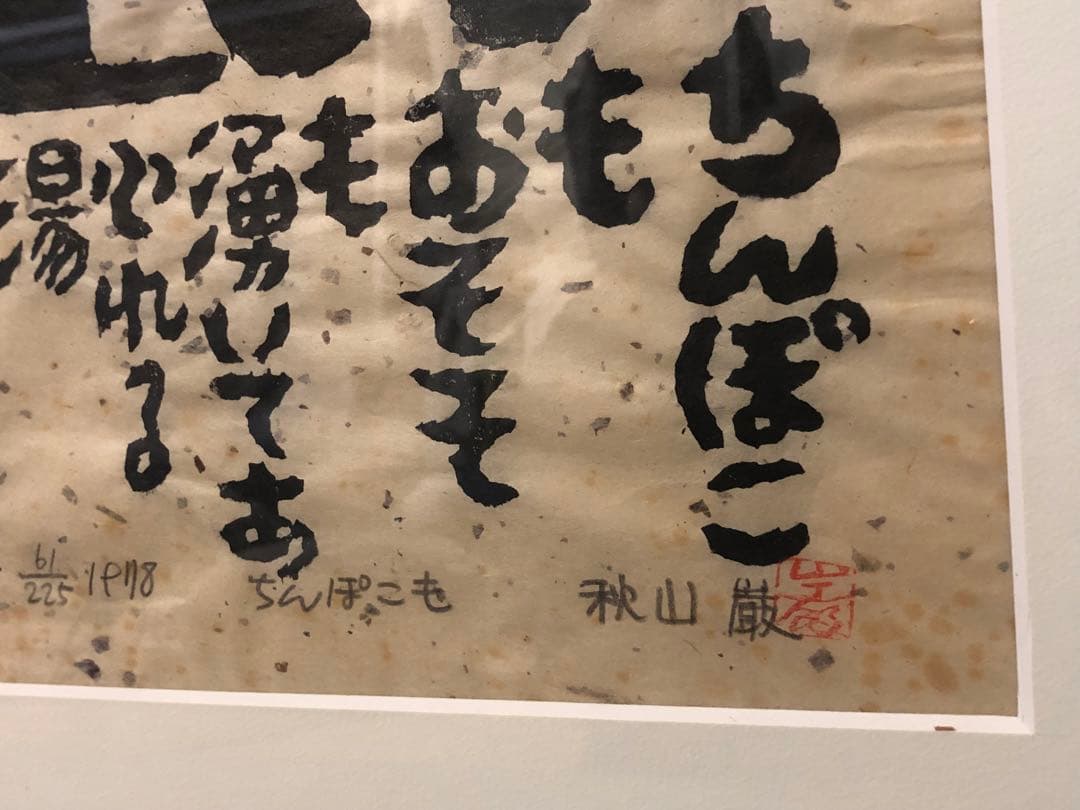 ちんぽこ
も
おそそ
も
湧いてあ
ふれる
湯
61/225 1978 ちんぽこも 秋山 巌